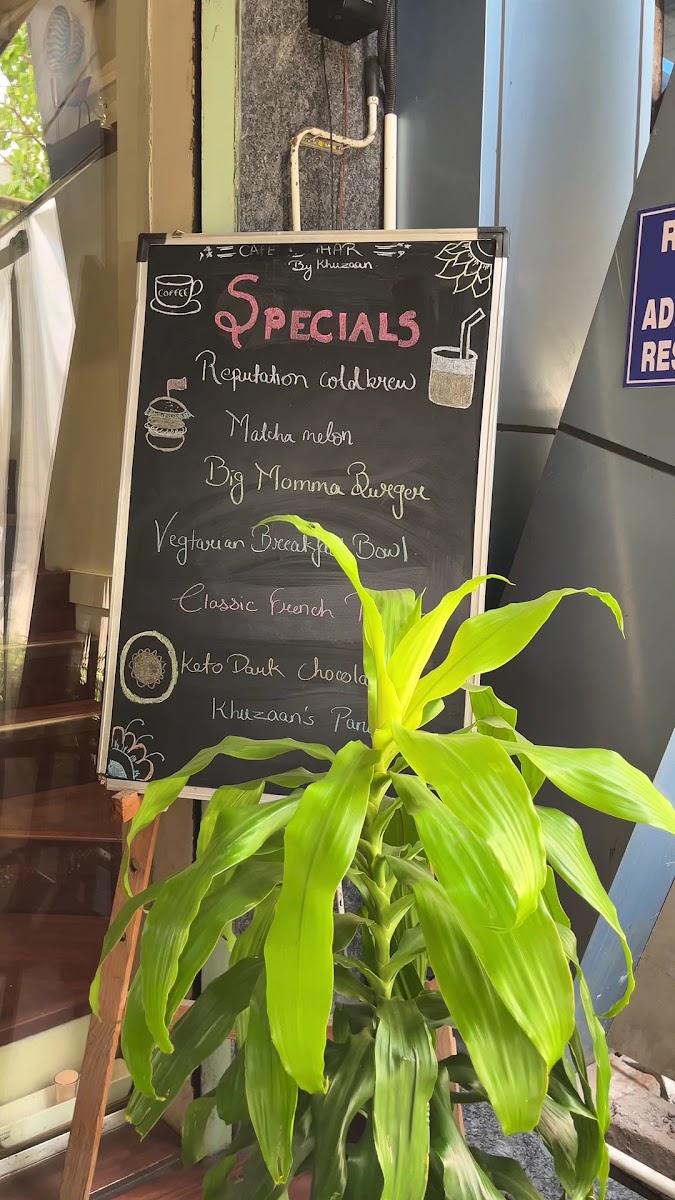 CAFE
By Khuzaan
COFFEE
SPECIALS
Reputation coldbrew
Matcha melon
Big Momma Burger
Vegtarian Breakfast Bowl
Classic French
Keto Dark
Khuzaan's
AD
RES